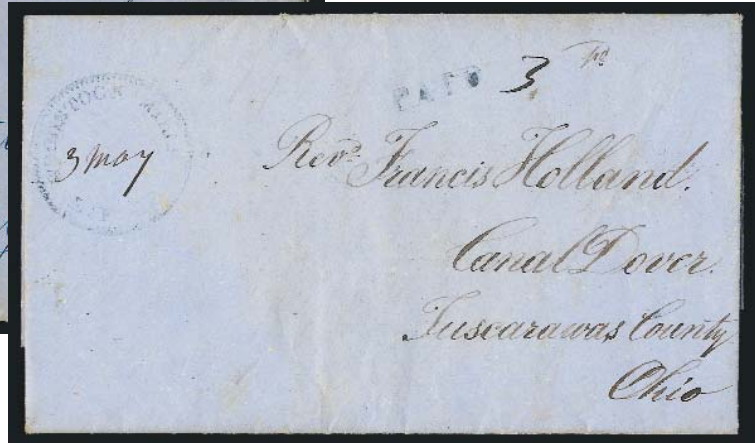 PAID 3
3 May
Revd. Francis Holland.
Canal Dover.
Tuscarawas County
Ohio